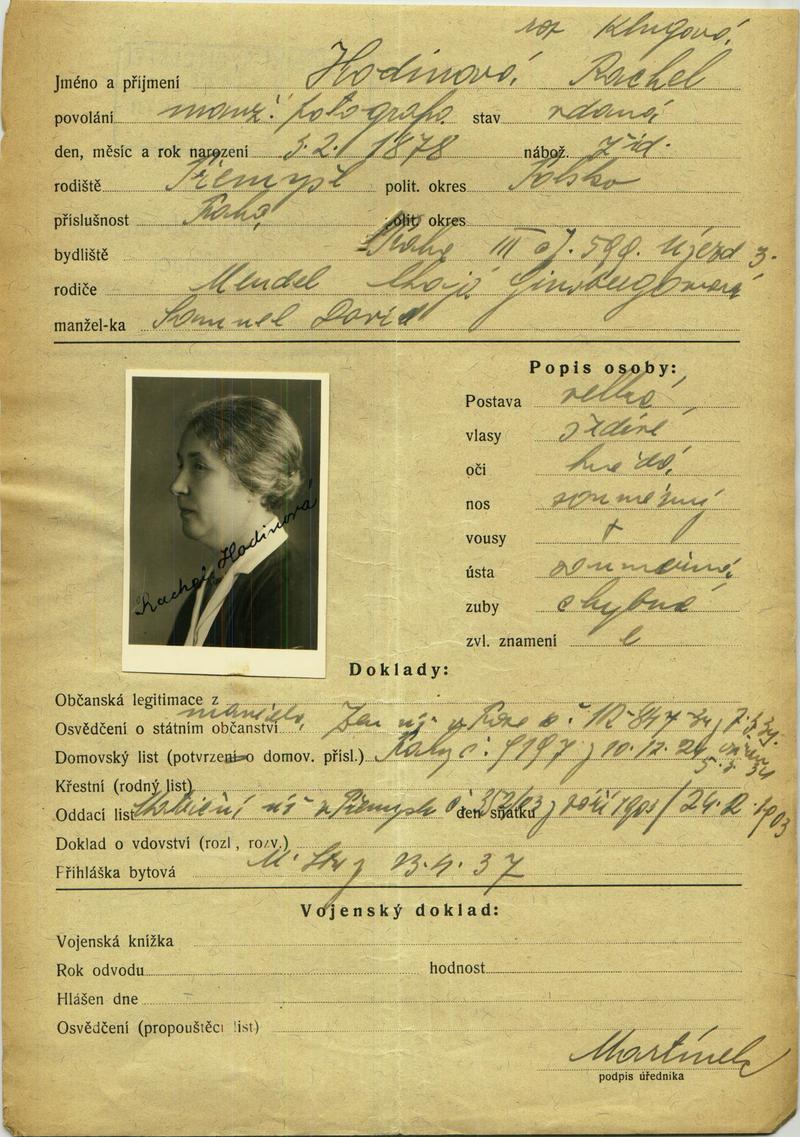 roz Klugová.
Jméno a příjmení Hodinová, Rachel
povolání manž. fotografa stav vdaná
den, měsíc a rok narození 3.2. 1878 nábož. žid.
rodiště Přemyšl polit. okres Polsko
příslušnost Praha polit. okres
bydliště Praha III čj. 598. Újezd 3.
rodiče Mendel Chaja Ginsbergová
manžel-ka Samuel David
Popis osoby:
Postava velká
vlasy šedivé
oči hnědá
nos souměrný
vousy
ústa souměrná
zuby chybné
zvl. znamení
Rachel Hodinová
Doklady:
Občanská legitimace z
Osvědčení o státním občanství manžela, Zem úř v Praze č.
Domovský list (potvrzení o domov. přísl.) Prahy č. 9197 z 10.12. 24
5.3.34
Křestní (rodný list)
Oddací list úř v Přemyslu č den sňatku září 1903 / 24.2. 1903
Doklad o vdovství (rozl, rozv.)
Přihláška bytová 13.4.37
Vojenský doklad:
Vojenská knížka
Rok odvodu hodnost
Hlášen dne
Osvědčení (propouštěcí list)
Martínek
podpis úředníka